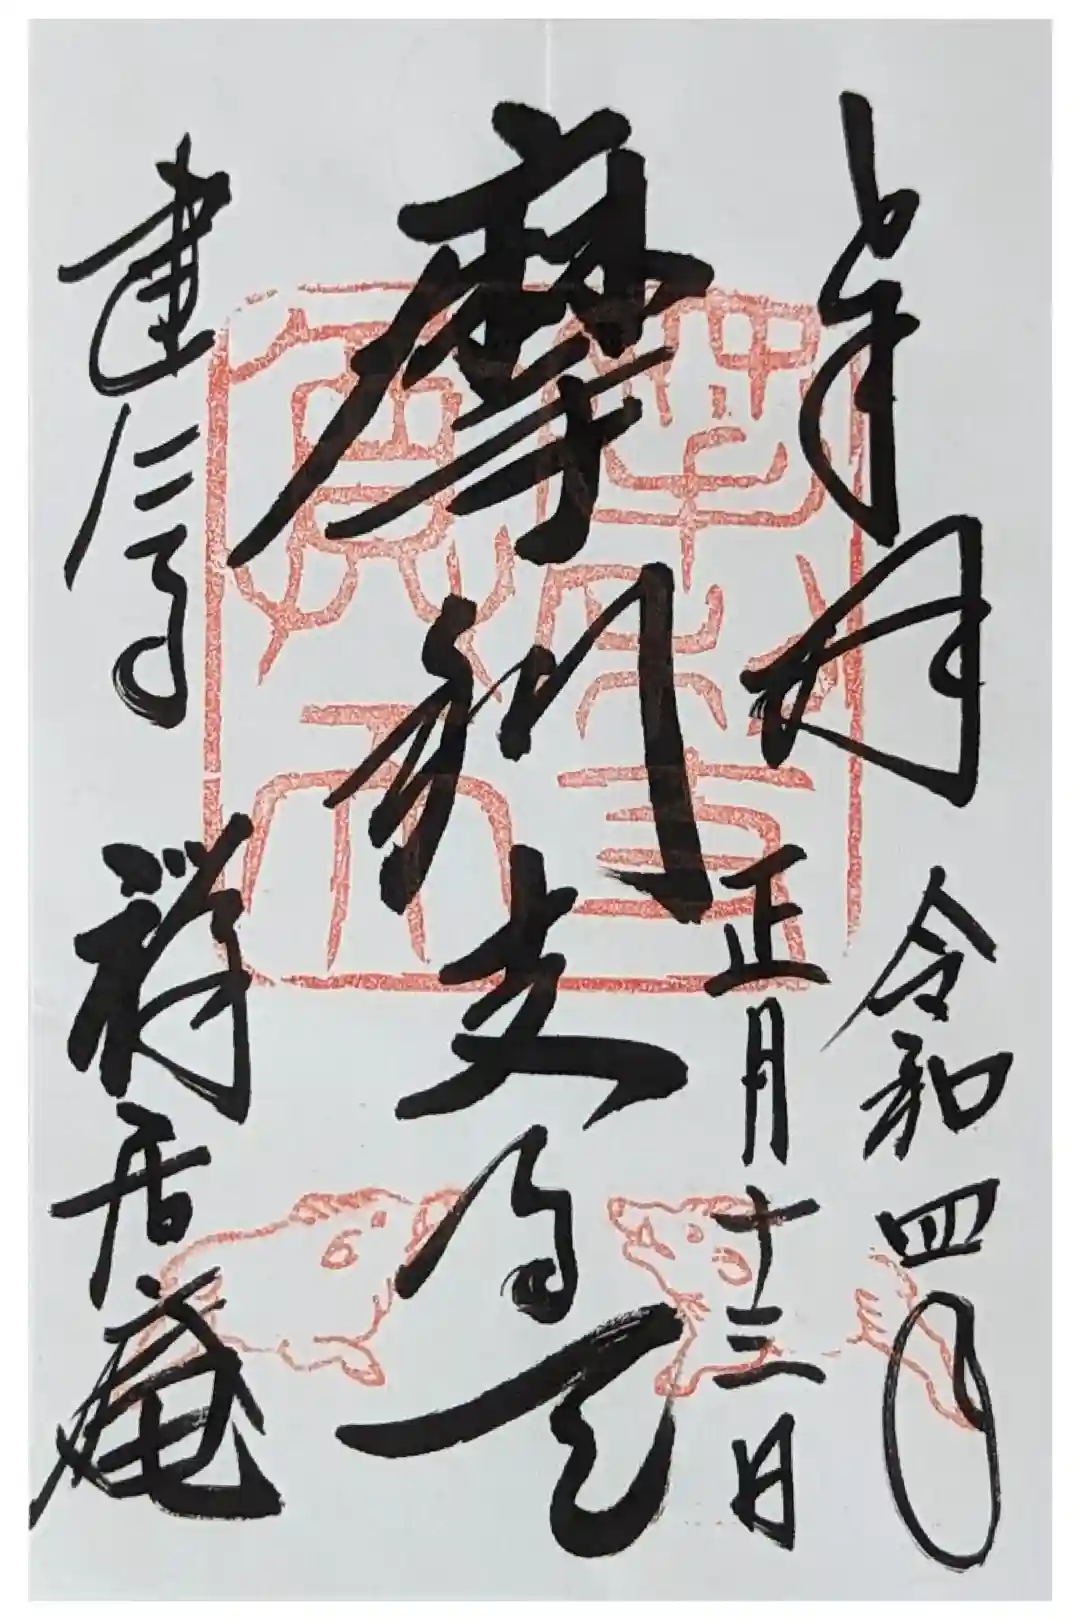 奉拝 令和四年
正月十三日
摩利支尊天
建仁寺 禅居庵